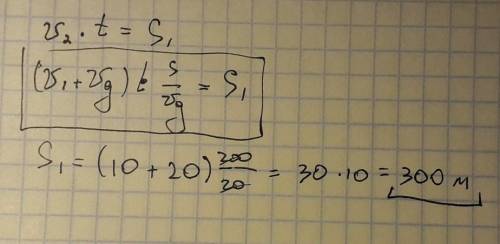 v₂ · t = S₁
(v₁ + v_g) t s/v_g = S₁
S₁ = (10 + 20) 200/20 = 30 · 10 = 300 м